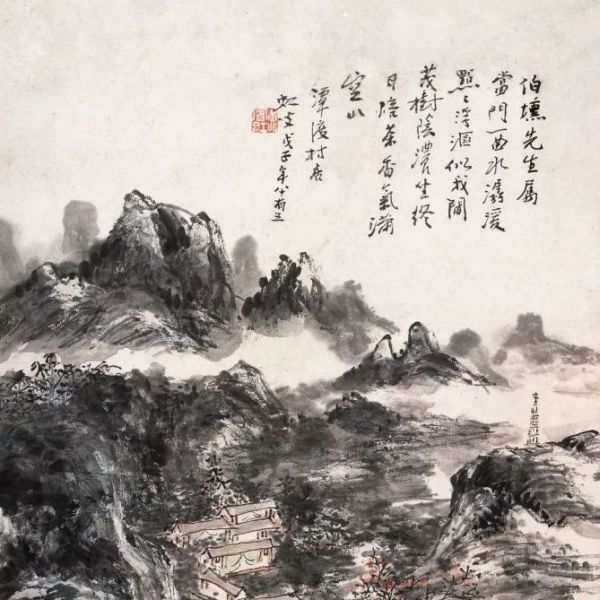 伯壎先生屬
當門一曲水潺湲
點〻浮漚似我閒
茂樹蔭濃坐終
日焙茶香氣滿
空山
潭渡村居
虹叟戊子年八十有五